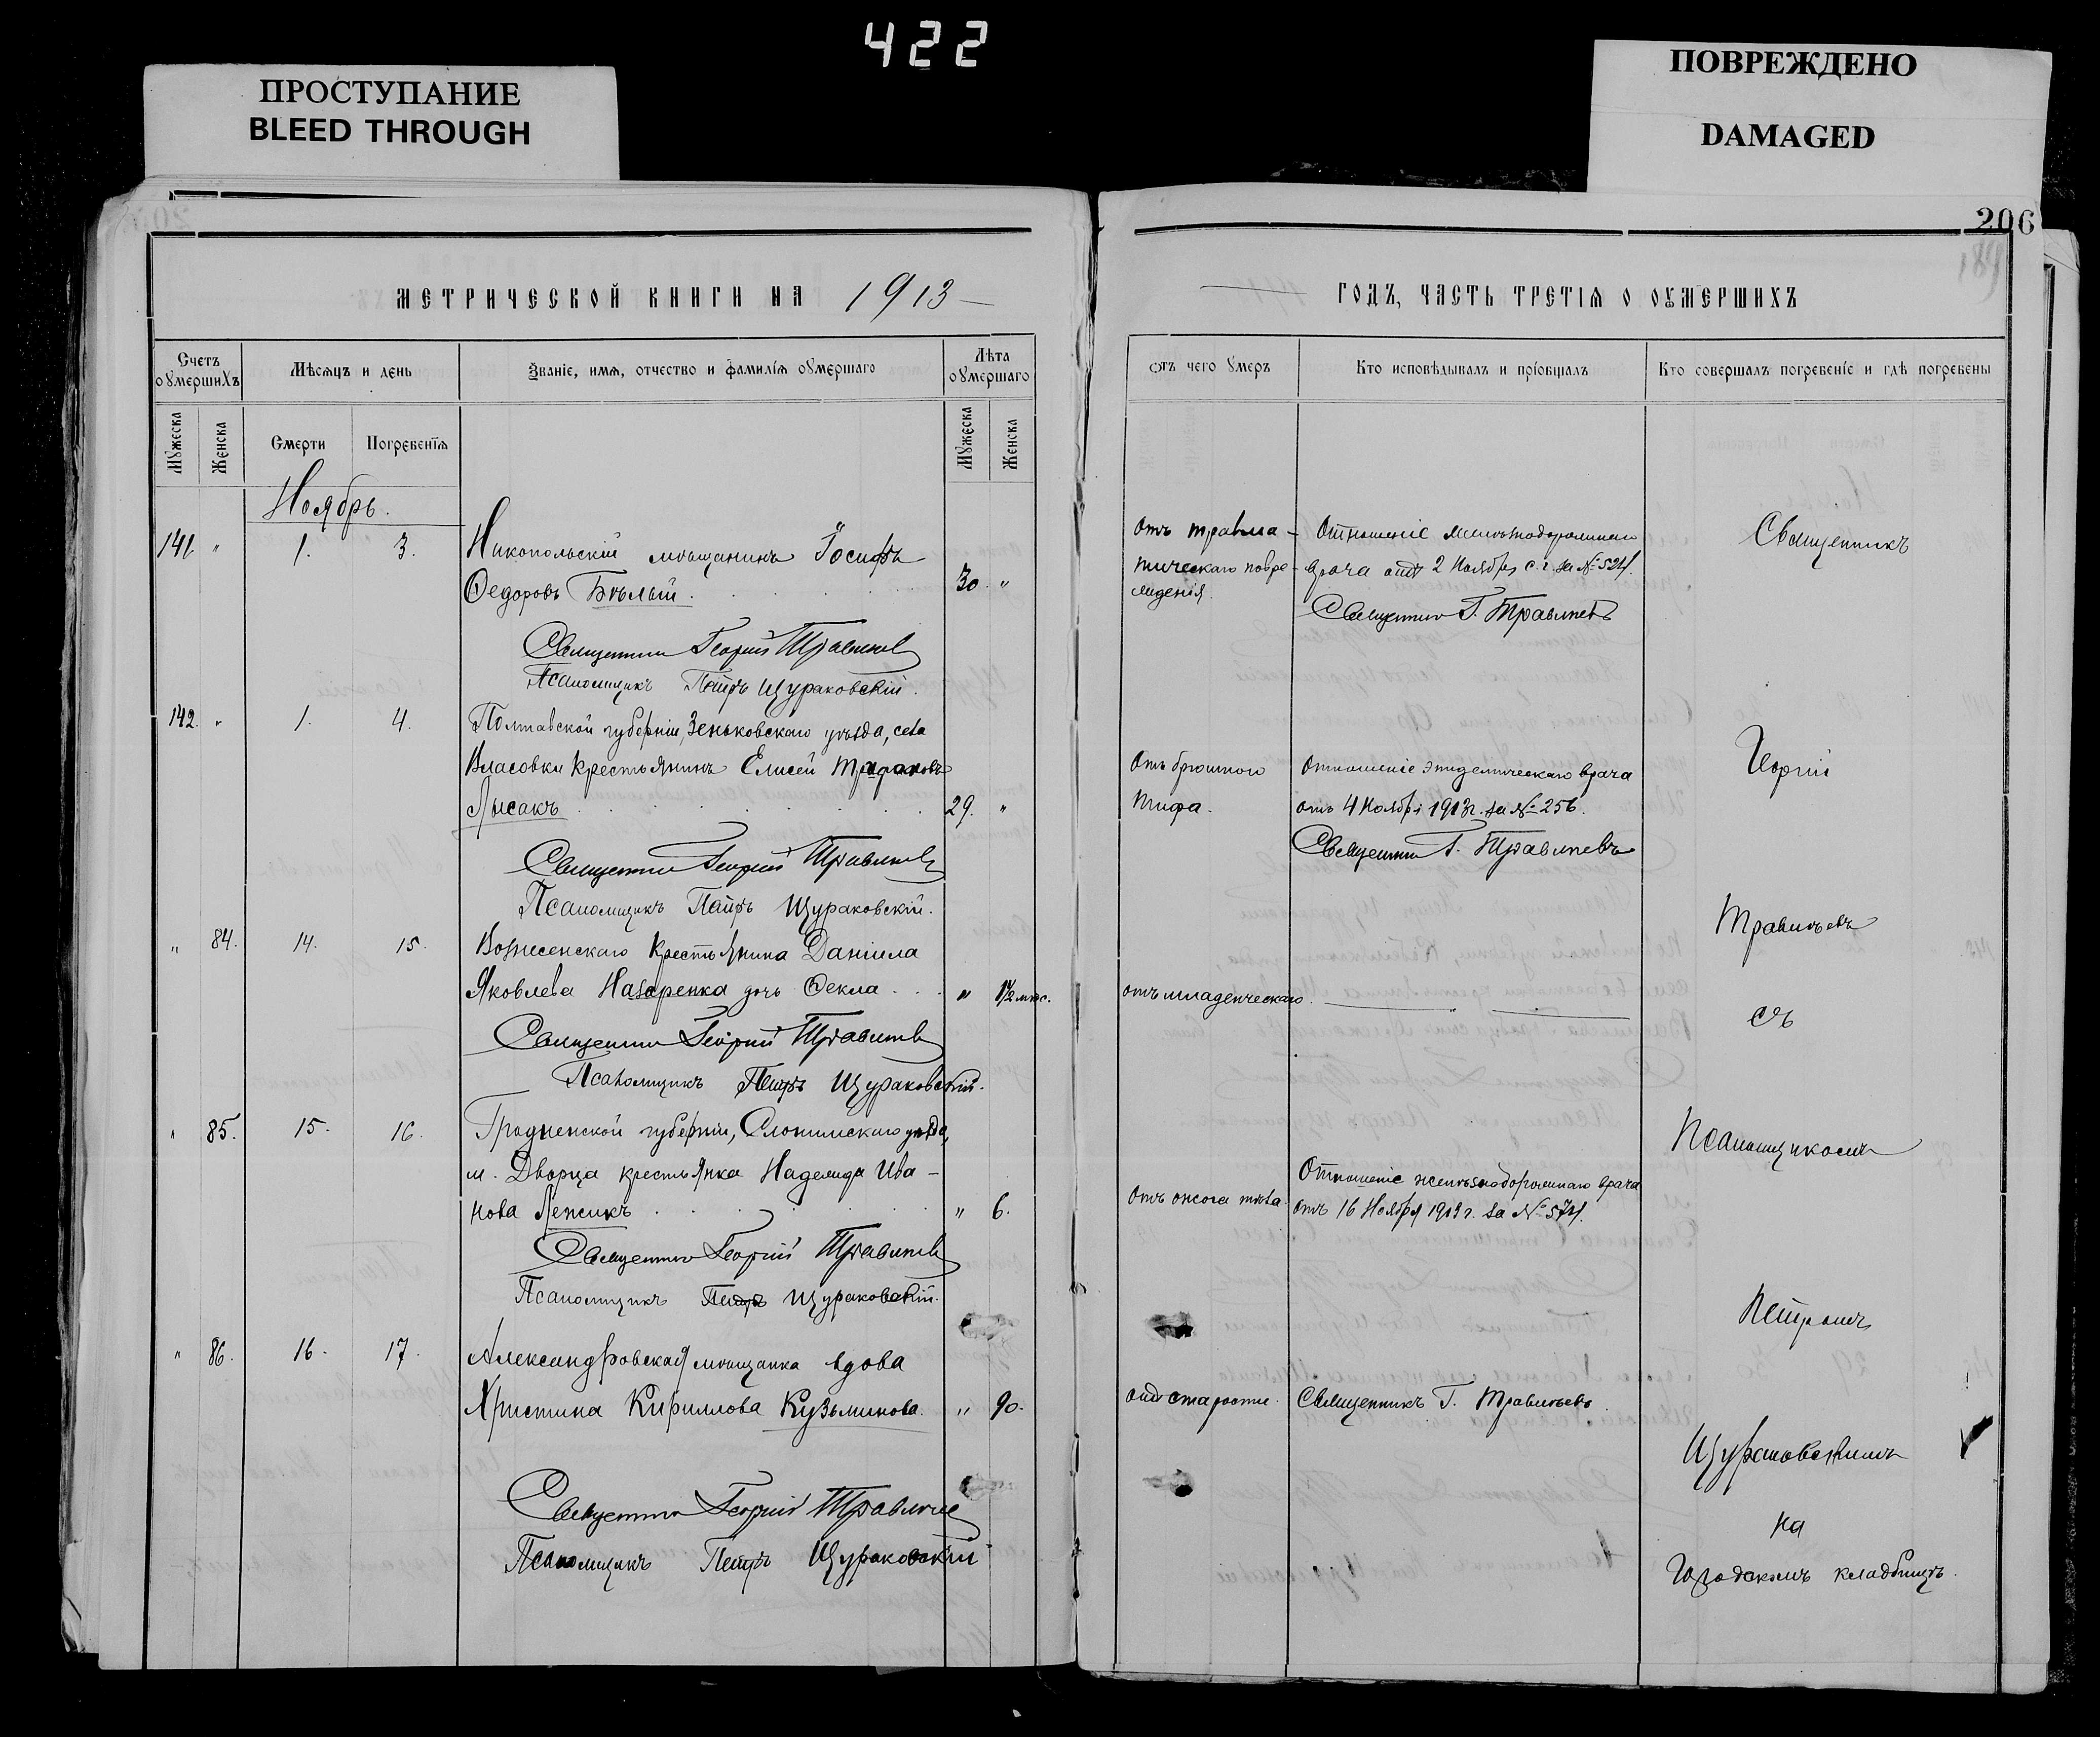 422
ПРОСТУПАНИЕ
BLEED THROUGH
ПОВРЕЖДЕНО
DAMAGED
206
189
МЕТРИЧЕСКОЙ КНИГИ НА 1913
Счетъ оумершихъ
Мѣсяцъ и день
Званіе, имя, отчество и фамилія оумершаго
Лѣта оумершаго
Мужеска
Женска
Смерти
Погребенїя
Мужеска
Женска
Ноябрь.
141. " 1. 3. Никопольскій мѣщанинъ Іосифъ
Ѳедоровъ Бѣлый. 30. "
Священникъ Георгій Травинъевъ
Псаломщикъ Петръ Щураковскій.
142. " 1. 4. Полтавской губерніи, Зеньковскаго уѣзда, села
Власовки крестьянинъ Елисей
Лысакъ 29. "
Священникъ Георгій
Псаломщикъ Петръ Щураковскій.
" 84. 14. 15. Вознесенскаго крестьянина Даніила
Яковлева Назаренка дочь Ѳекла " 1/2 мѣс.
Священникъ Георгій
Псаломщикъ Петръ Щураковскій.
" 85. 15. 16. Гродненской губерніи, Слонимскаго уѣзда,
м. Дворца крестьянка Надежда Ива-
нова Лежикъ " 6.
Священникъ Георгій
Псаломщикъ Петръ Щураковскій.
" 86. 16. 17. Александровская мѣщанка вдова
Христина Кириллова Кузьминова. " 90.
Священникъ Георгій
Псаломщикъ Петръ Щураковскій
ГОДЪ, ЧАСТЬ ТРЕТІЯ О ОУМЕРШИХЪ
отъ чего умеръ
Кто исповѣдывалъ и пріобщалъ
Кто совершалъ погребеніе и гдѣ погребены
Отъ травма-
тическаго повре-
жденія.
Отношеніе желѣзнодорожнаго
врача отъ 2 Ноября с. г. за № 524.
Священникъ Г.
Отъ брюшного
тифа.
Отношеніе эпидемическаго врача
отъ 4 Ноября 1913 г. за № 256.
Священникъ Г.
отъ младенческаго.
Отъ ожога тѣла.
Отношеніе желѣзнодорожнаго врача
отъ 16 Ноября 1913 г. за № 574.
отъ старости.
Священникъ Г.
Священникъ
Георгій
съ
Псаломщикомъ
Петромъ
Щураковскимъ
на
Городскомъ кладбищѣ.